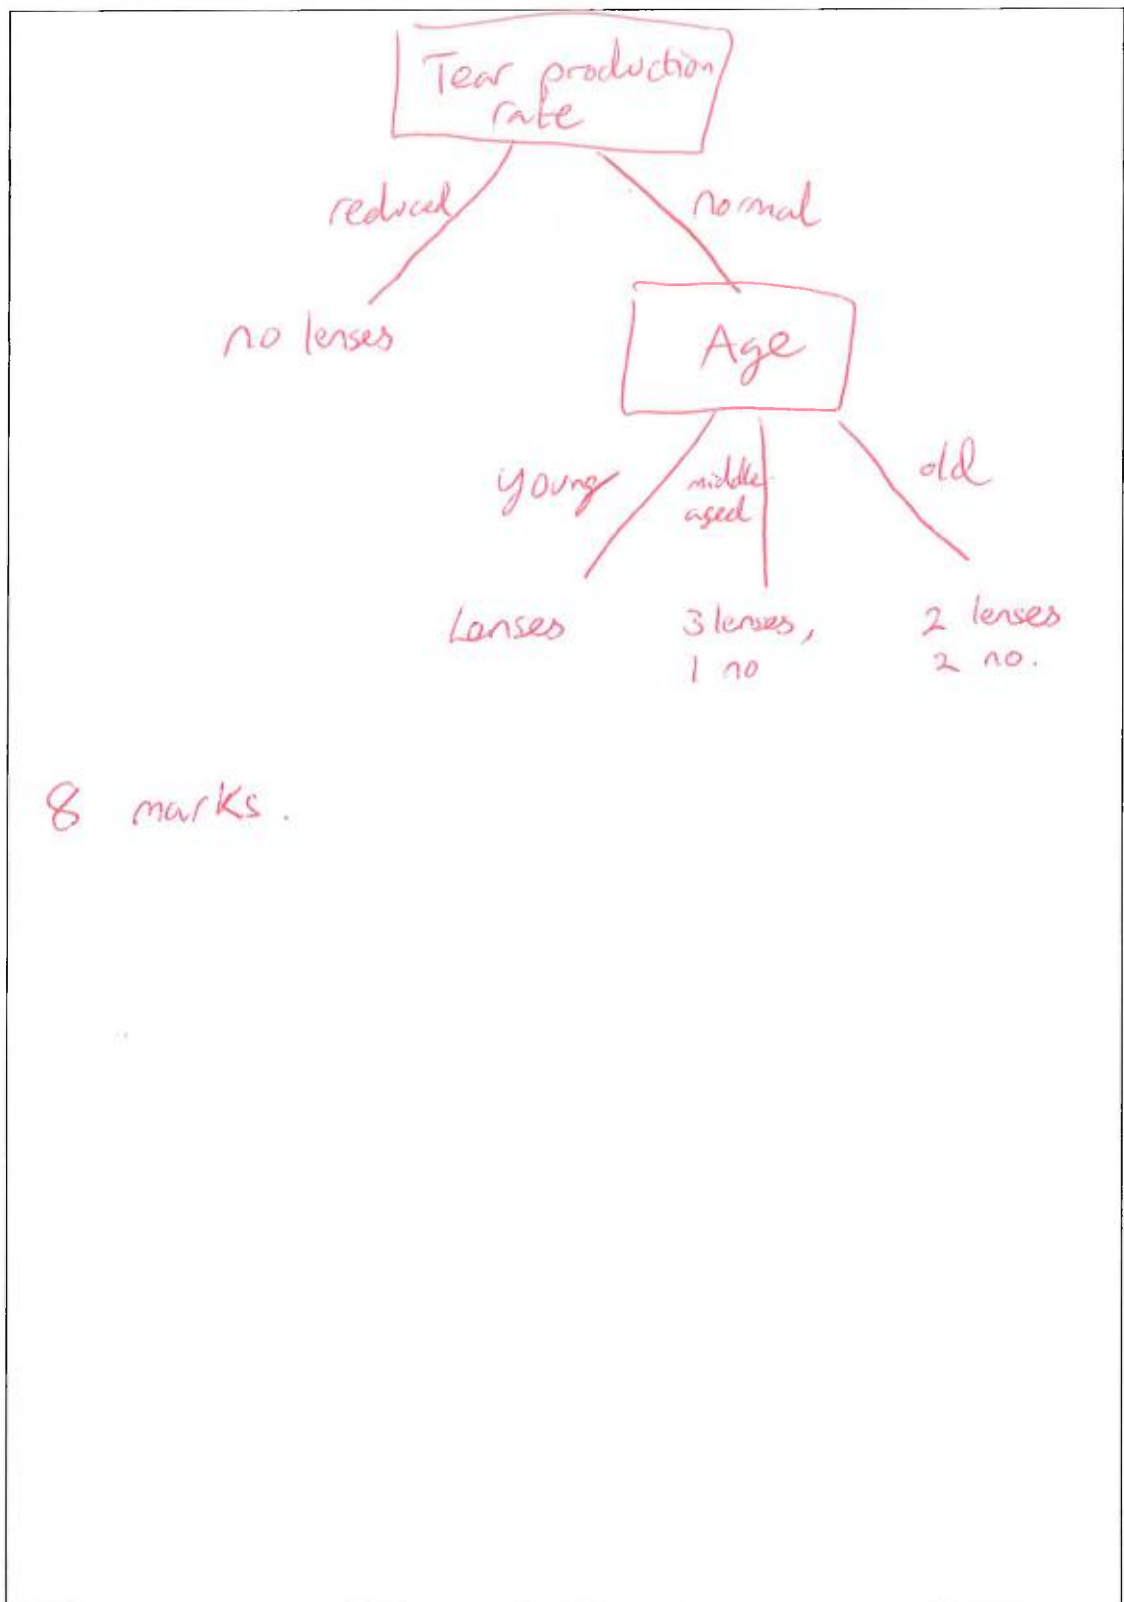 Tear production
rate
reduced
normal
no lenses
Age
young
middle-
aged
old
Lenses
3 lenses,
1 no
2 lenses
2 no.
8 marks.